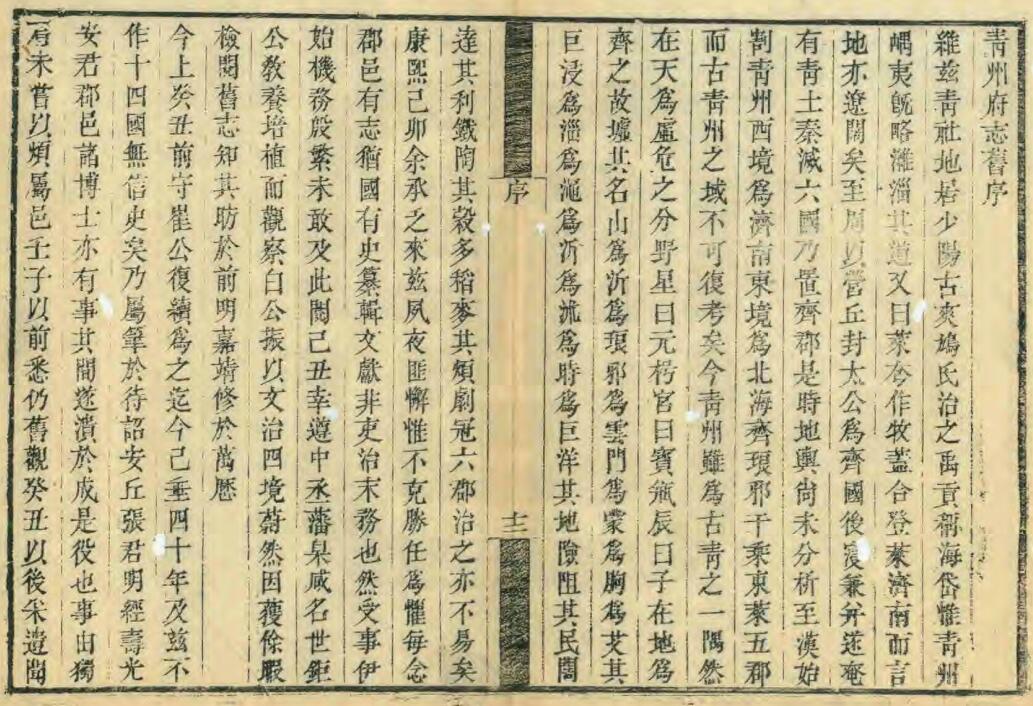 青州府志舊序
維茲青社地居少陽古爽鳩氏治之禹貢稱海岱惟青州
嵎夷旣略濰淄其道又曰萊夷作牧蓋合登萊濟南而言
地亦遼闊矣至周以營丘封太公爲齊國後寖兼弁遂奄
有青土秦滅六國乃置齊郡是時地輿尙未分析至漢始
割青州西境爲濟南東境爲北海齊琅邪千乘東萊五郡
而古青州之域不可復考矣今青州雖爲古青之一隅然
在天爲虛危之分野星曰元枵宮曰寶瓶辰曰子在地爲
齊之故墟其名山爲沂爲琅邪爲雲門爲蒙爲朐爲艾其
巨浸爲淄爲澠爲沂爲沭爲時爲巨洋其地險阻其民闊
序
十三
達其利鐵陶其穀多稻麥其煩劇冠六郡治之亦不易矣
康熙己卯余承乏來茲夙夜匪懈惟不克勝任爲懼每念
郡邑有志猶國有史纂輯文獻非吏治末務也然受事伊
始機務殷繁未敢及此閱己丑幸遵中丞藩臬咸名世鉅
公教養培植而觀察白公振以文治四境蔚然因獲餘暇
檢閱舊志知其昉於前明嘉靖修於萬厯
今上癸丑前守崔公復續爲之迄今己垂四十年及茲不
作十四國無信史矣乃屬筆於待詔安丘張君明經壽光
安君郡邑諸博士亦有事其間遂潰於成是役也事由獨
肩未嘗以煩屬邑壬子以前悉仍舊觀癸丑以後采遺聞